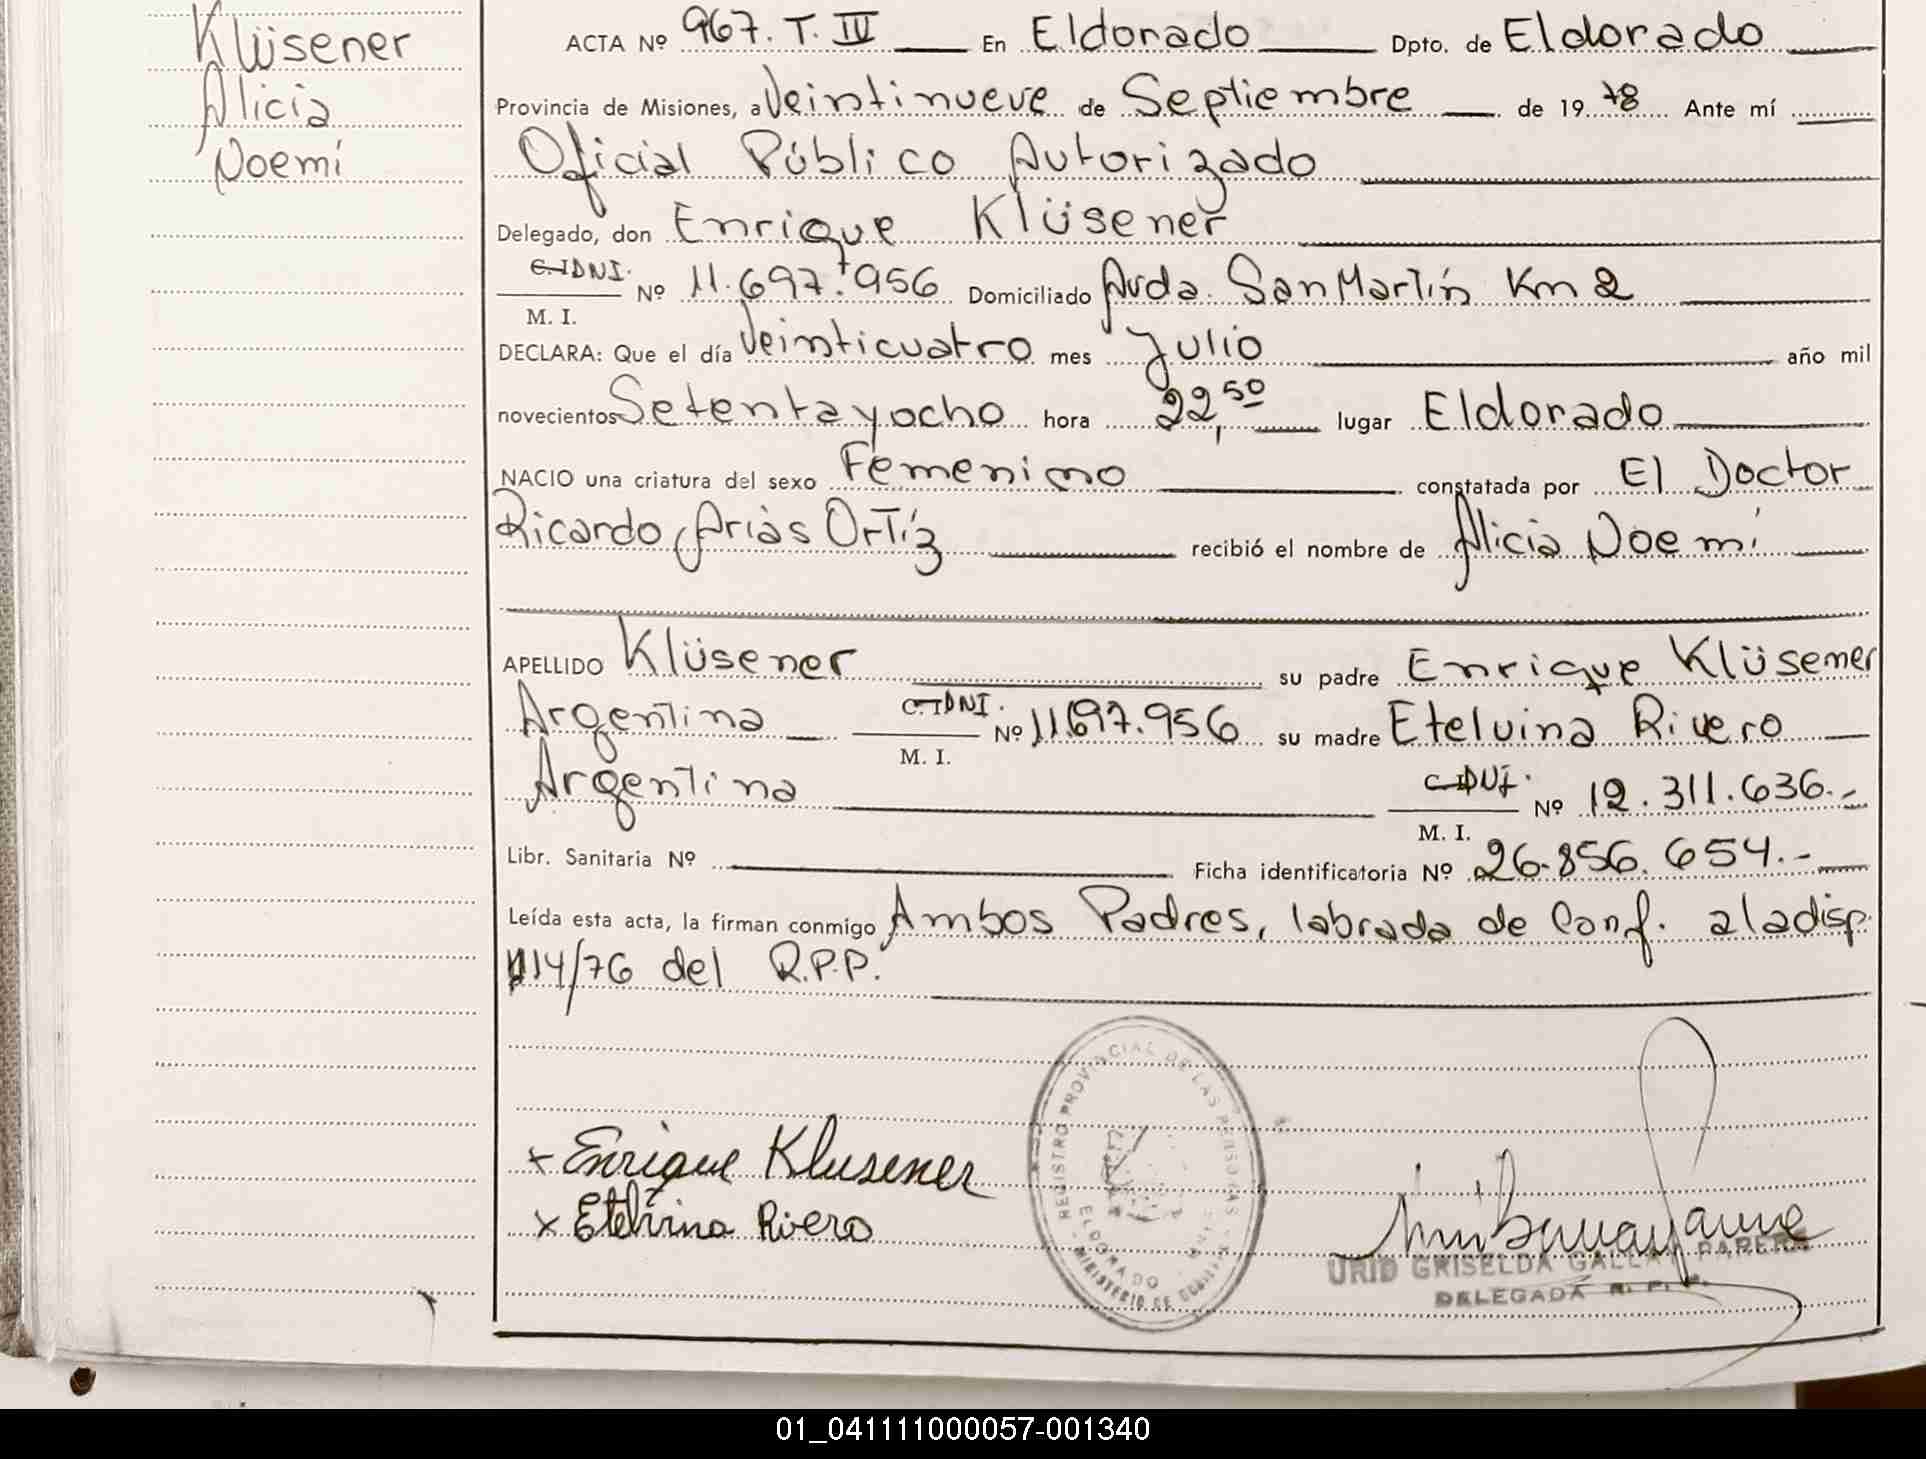 Klüsener
Alicia
Noemí
ACTA Nº 967. T. IV En Eldorado Dpto. de Eldorado
Provincia de Misiones, a Veintinueve de Septiembre de 19 78 Ante mí
Oficial Público Autorizado
Delegado, don Enrique Klüsener
C.I DNI. M. I. Nº 11.697.956 Domiciliado Avda. San Martín Km 2
DECLARA: Que el día Veinticuatro mes Julio año mil
novecientos Setenta y ocho hora 22,50 lugar Eldorado
NACIO una criatura del sexo Femenino constatada por El Doctor
Ricardo Arias Ortíz recibió el nombre de Alicia Noemí
APELLIDO Klüsener su padre Enrique Klüsener
Argentina C.I DNI. M. I. Nº 11.697.956 su madre Etelvina Rivero
Argentina C.I DNI. M. I. Nº 12.311.636.-
Libr. Sanitaria Nº Ficha identificatoria Nº 26.856.654.-
Leída esta acta, la firman conmigo Ambos Padres, labrada de Conf. a la disp.
114/76 del R.P.P.
REGISTRO PROVINCIAL DE LAS PERSONAS
ELDORADO
MINISTERIO DE GOBIERNO
x Enrique Klusener
x Etelvina Rivero
GRISELDA
DELEGADA R. P. P.
01_041111000057-001340